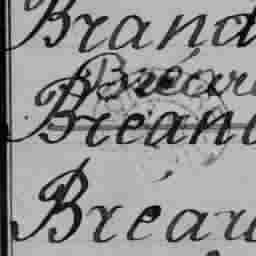 Brand
Bréar
Bréan
Bréar